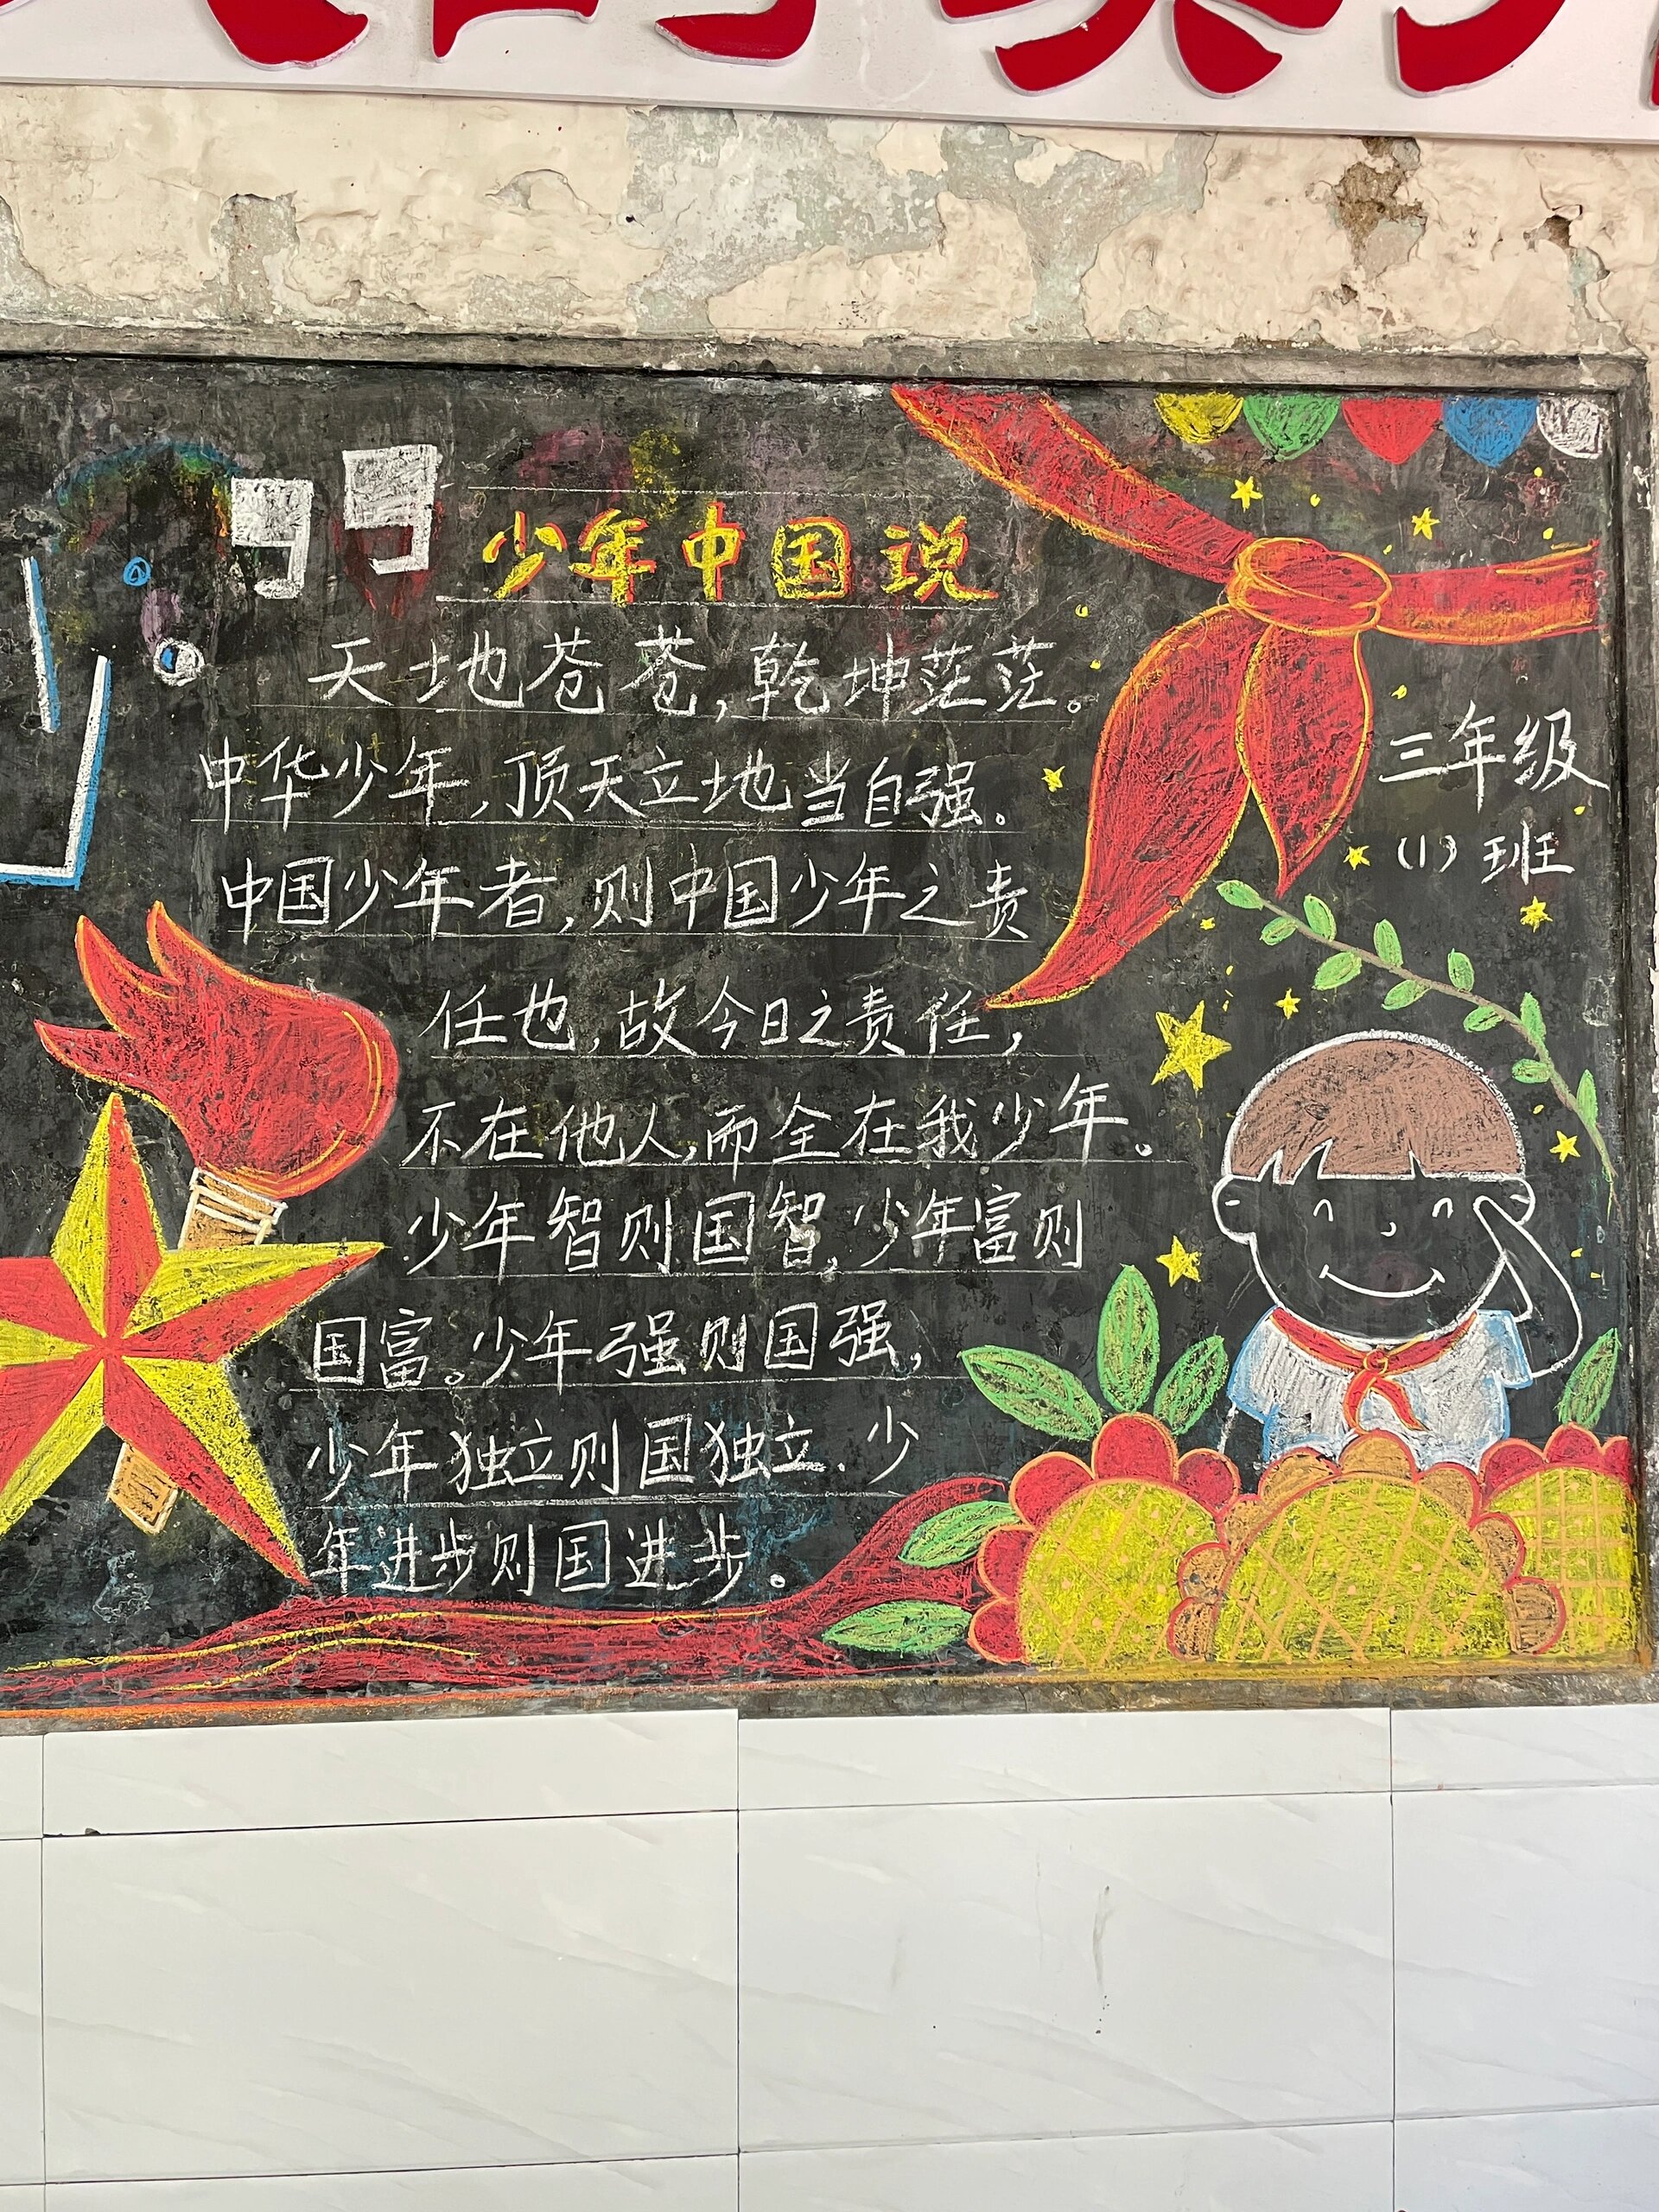 少年中国说
天地苍苍,乾坤茫茫。
中华少年,顶天立地当自强。
中国少年者,则中国少年之责
任也,故今日之责任,
不在他人,而全在我少年。
少年智则国智,少年富则
国富。少年强则国强,
少年独立则国独立.少
年进步则国进步。
三年级
(1)班